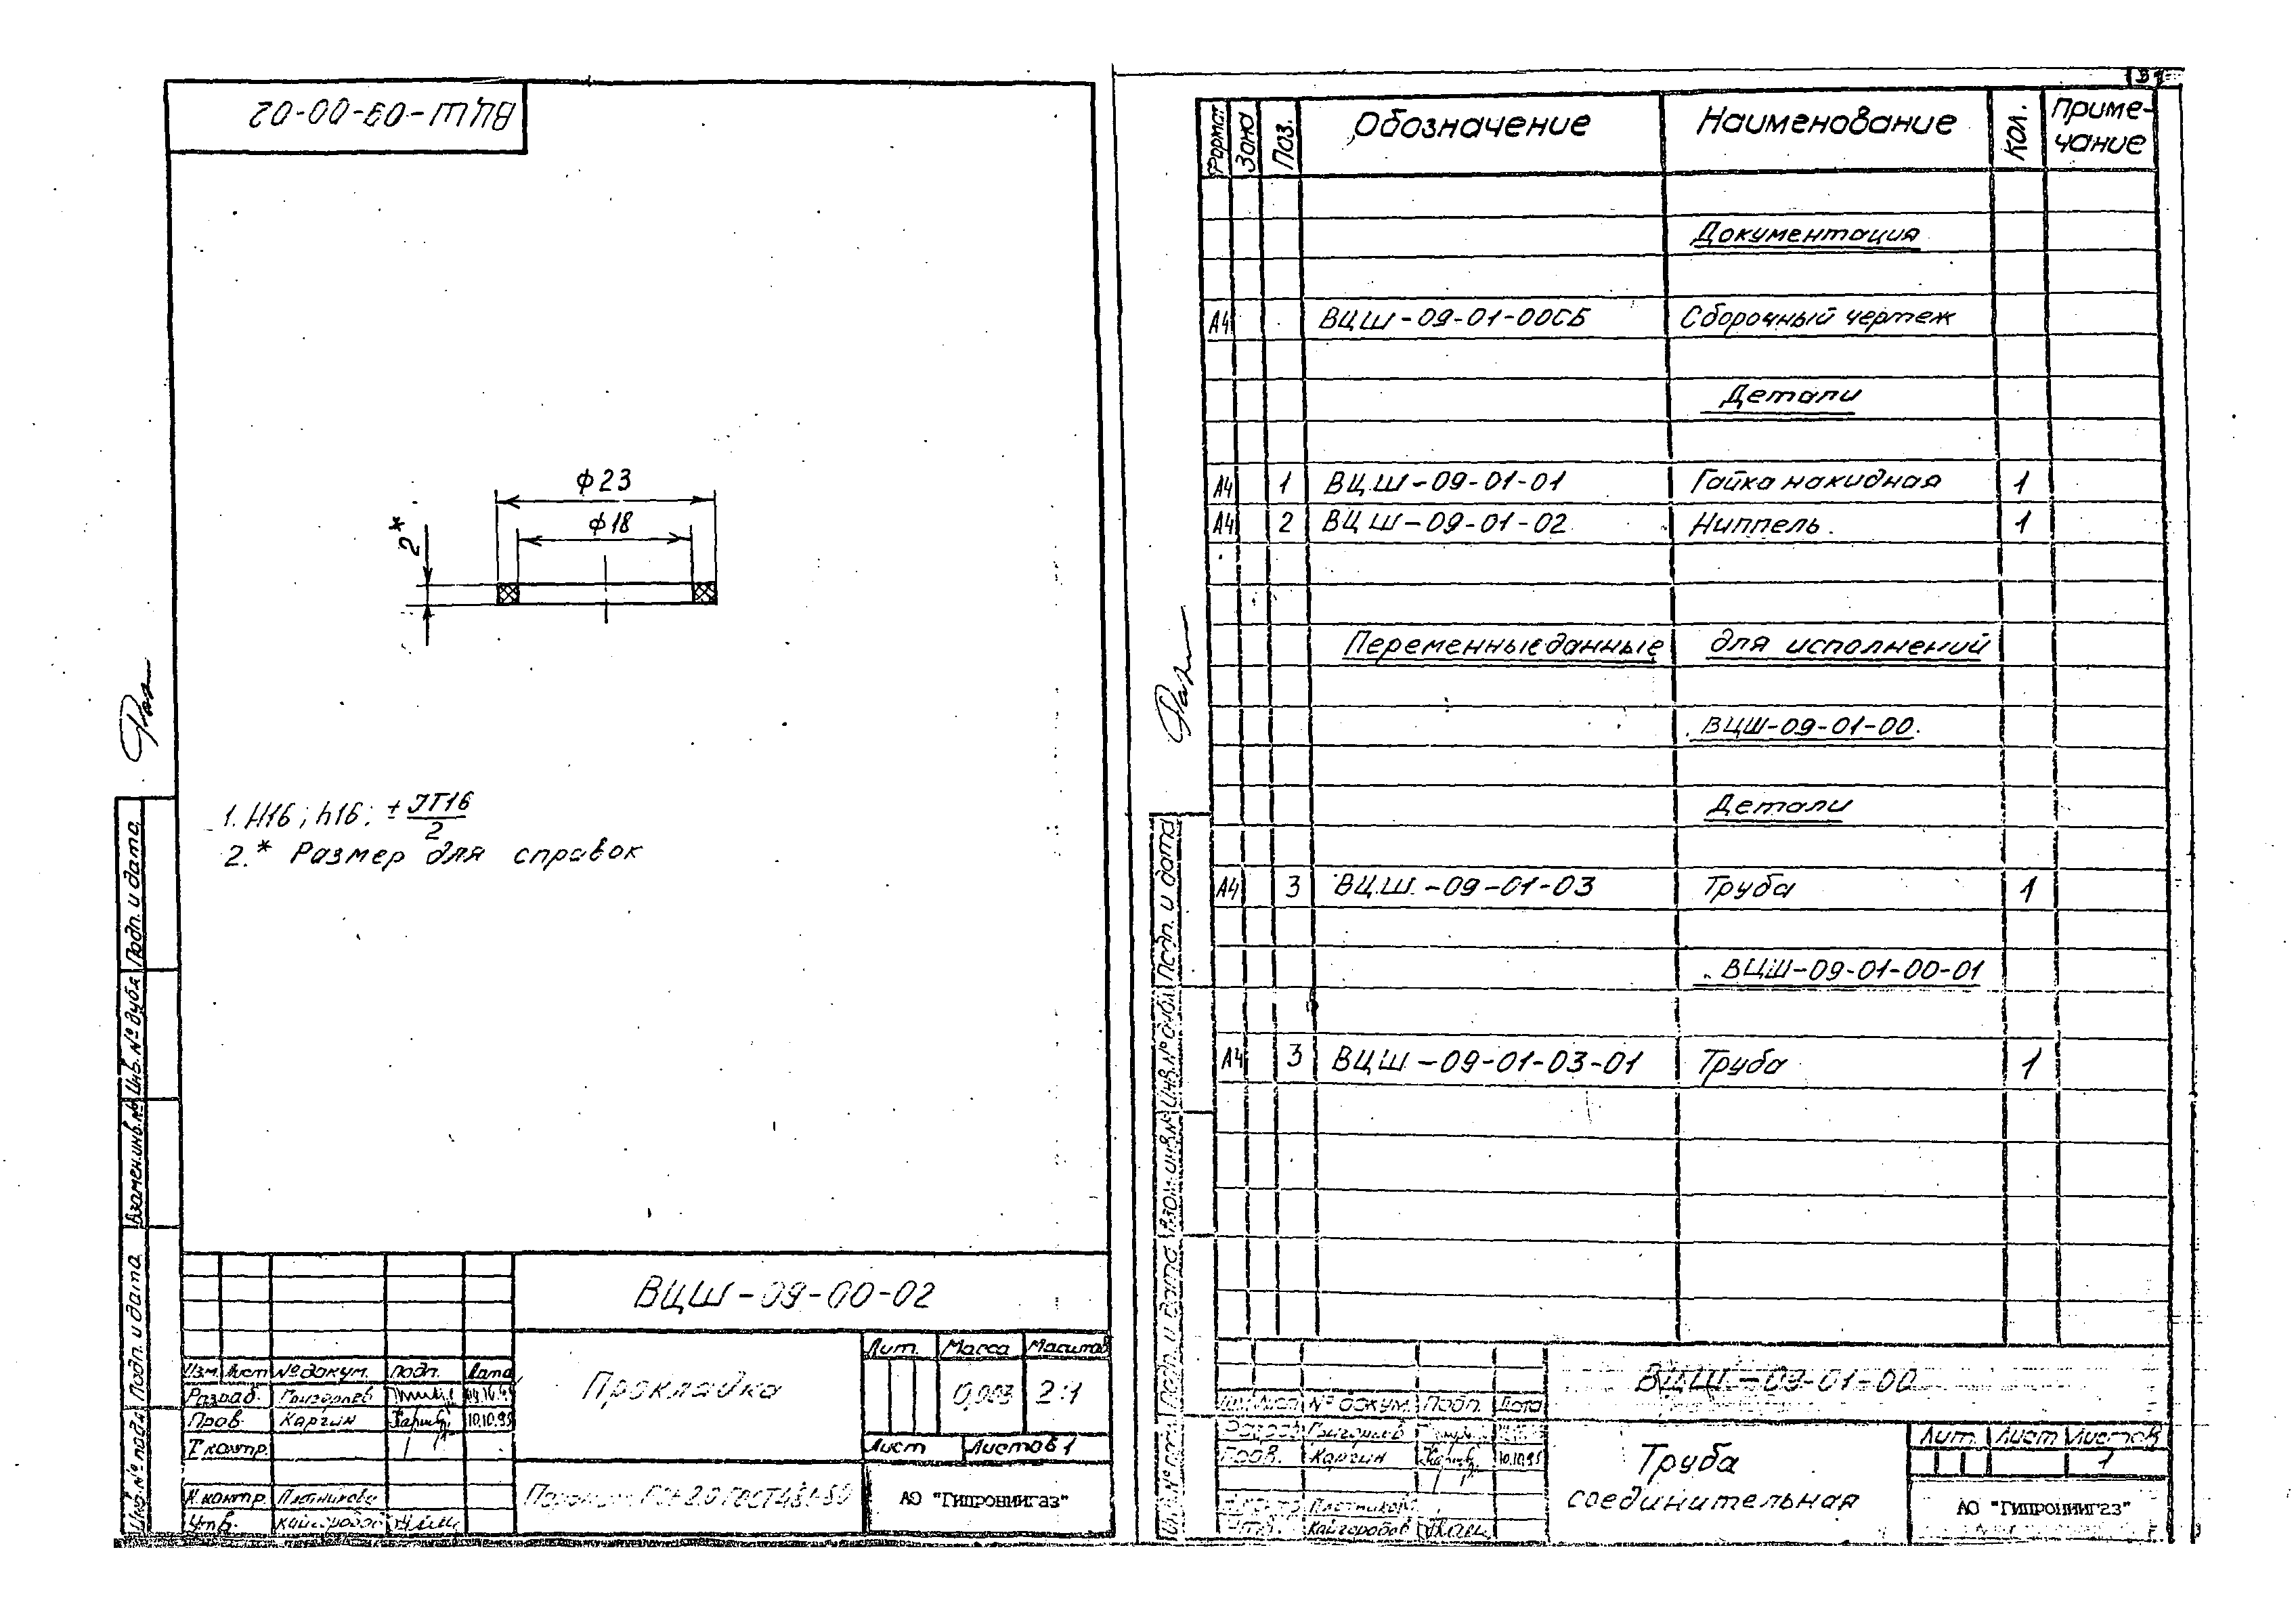 ВЦШ-09-00-02
ϕ23
ϕ18
2*
1. H16; h16; ± IT16/2
2.* Размер для справок
Подп. и дата
Инв. № дубл.
Взамен инв. №
Подп. и дата
Инв. № подл.
ВЦШ-09-00-02
Изм. Лист № докум. Подп. Дата
Разраб. Григорьев
Пров. Каргин 10.10.95
Т. контр.
Н. контр.
Утв. Кайгородов
Прокладка
Лит. Масса Масштаб
0,003 2:1
Лист Листов 1
АО "Гипрониигаз"
Формат Зона Поз. Обозначение Наименование Кол. Приме-
чание
Документация
А4 ВЦШ-09-01-00СБ Сборочный чертеж
Детали
А4 1 ВЦШ-09-01-01 Гайка накидная 1
А4 2 ВЦШ-09-01-02 Ниппель 1
Переменные данные для исполнений
ВЦШ-09-01-00
Детали
А4 3 ВЦШ-09-01-03 Труба 1
ВЦШ-09-01-00-01
А4 3 ВЦШ-09-01-03-01 Труба 1
Подп. и дата
Инв. № дубл.
Взам. инв. №
Подп. и дата
Инв. № подл.
ВЦШ-09-01-00
Изм. Лист № докум. Подп. Дата
Разраб. Григорьев
Пров. Каргин 10.10.95
Н. контр.
Утв. Кайгородов
Труба
соединительная
Лит. Лист Листов
1
АО "Гипрониигаз"